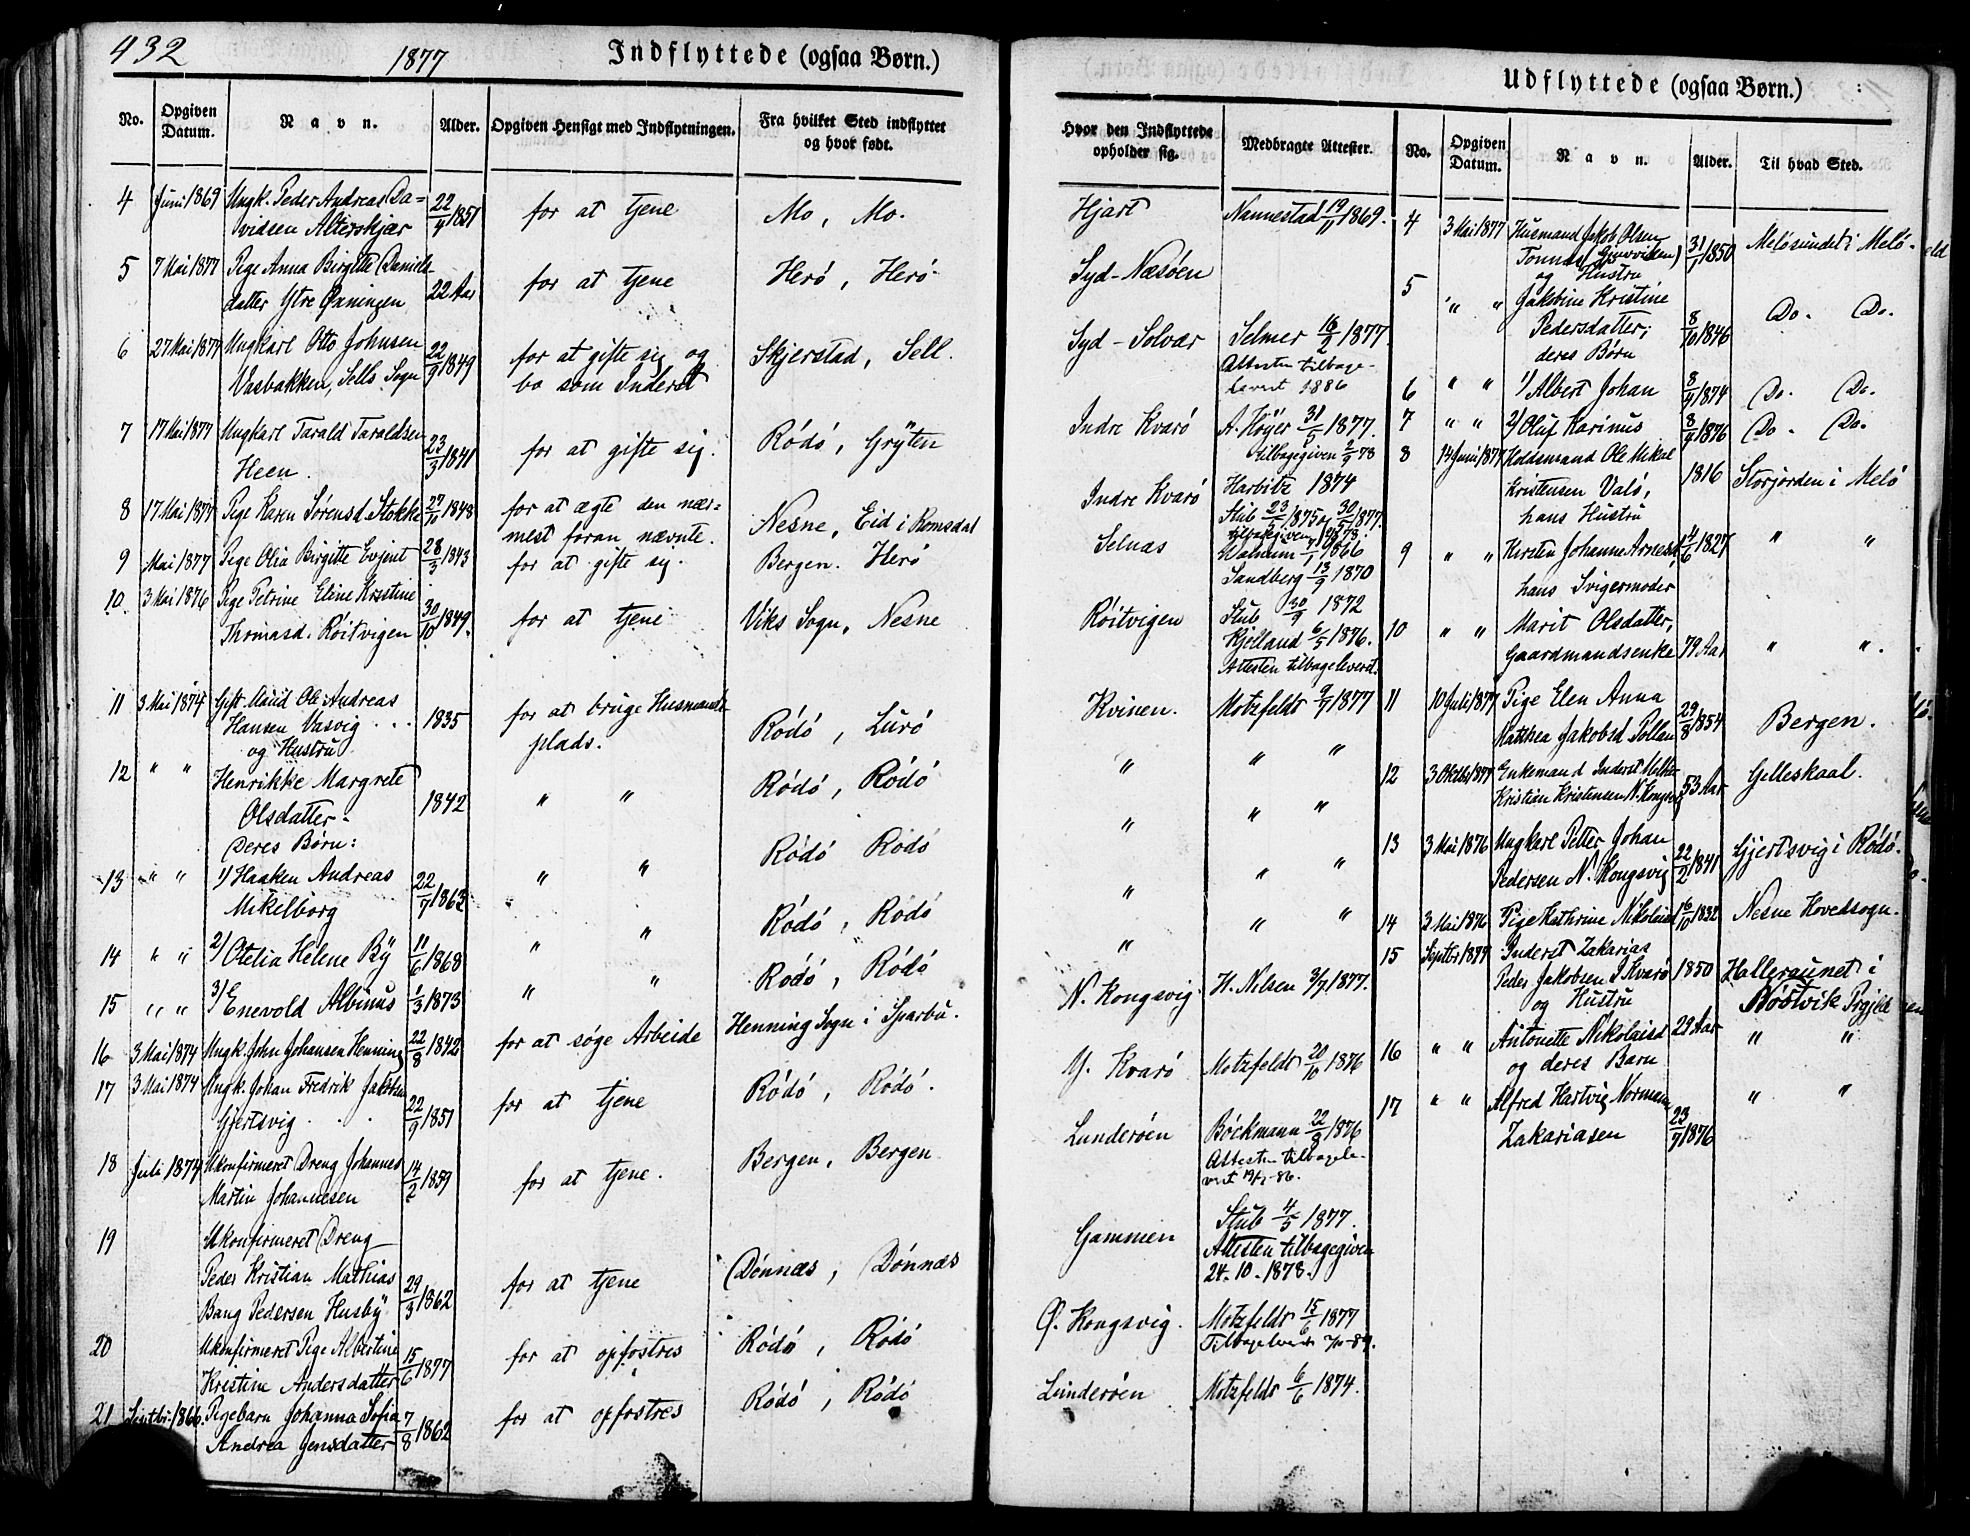 432
1877
Indflyttede (ogsaa Børn.)
No.
Opgiven Datum.
Navn.
Alder.
Opgiven Hensigt med Indflytningen.
Fra hvilket Sted indflyttet og hvor født.
4 Juni 1869 Ungk. Peder Andreas Da= 22/4 1851 for at tjene Mo, Mo.
vidsen Alterskjær
5 7 Mai 1877 Pige Anna Birgitte Daniels 22 Aar for at tjene Herö, Herö
datter Ytre Øxningen
6 27 Mai 1877 Ungkarl Otto Johnsen 22/9 1849 for at gifte sig og Skjerstad, Sell.
Vasbakken, Sells Sogn bo som Inderst
7 17 Mai 1877 Ungkarl Tarald Taraldsen 23/3 1841 for at gifte sig. Rödö, Gryten
Heen.
8 17 Mai 1877 Pige Karen Sørensd. Stokke 27/10 1848 for at ægte den nær= Nesne, Eid i Romsdal
mest foran nævnte.
9 Mai 1877 Pige Olia Birgitte 28/3 1843 for at gifte sig. Bergen. Herö
10. 3 Mai 1876 Pige Petrine Eline Kristine 30/10 1849. for at tjene Viks Sogn, Nesne
Thomasd. Röitvigen
11 3 Mai 1874 Gift Mand Ole Andreas 1835 for at bruge Husmands Rödö, Lurö
Hansen Vasvig plads.
og Hustru
12 " " Henrikke Margrete 1842 " " Rödö, Rödö
Olsdatter-
Deres Børn: Rödö Rödö
13 " " 1) Haaken Andreas 22/7 1863 " "
Mikelborg Rödö, Rödö
14 " " 2) Otelia Helene By 11/6 1868 " "
15 " " 3) Enevold Albinus 1/3 1873 " " Rödö, Rödö
16 3 Mai 1874 Ungk. John Johansen Henning 22/8 1842 for at søge Arbeide Henning Sogn i Sparbu.
17 3 Mai 1874 Ungk. Johan Fredrik Jakobsen 22/9 1851 for at tjene Rödö, Rödö.
Gjertsvig
18 Juli 1877 Ukonfirmeret Dreng Johannes 14/2 1859 for at tjene. Bergen, Bergen
Martin Johannesen
19 Ukonfirmeret Dreng
Peder Kristian Mathias 29/3 1862 for at tjene Dönnæs, Dönnæs
Bang Pedersen Husby
20 Ukonfirmeret Pige Albertine 15/6 1877 for at opfostres Rödö, Rödö
Kristine Andersdatter
21 Septbr. 1866 Pigebarn Johanna Sofia 7/8 1862 for at opfostres Rödö, Rödö
Andrea Jensdatter
Udflyttede (ogsaa Børn.)
Hvor den Indflyttede opholder sig.
Medbragte Attester.
No.
Opgiven Datum.
Navn.
Alder.
Til hvad Sted.
Hjart Nannestad 19/11 1869.
Syd-Næsöen
Syd-Solvær Selmer 16/3 1877.
Attesten tilbage-
levert 1886
Indre Kvarö A. Höyer 31/5 1877.
tilbagegiven 2/9 78
Indre Kvarö Harbitz 1874
Stub 23/5 1875 30/5 1877.
Selnæs 1866
Sandberg 13/9 1870
Röitvigen Stub 30/9 1872
Kjelland 6/5 1876.
Attesten tilbageleveret.
Kvinen. Motzfeldt 9/7 1877
" " "
" " "
" " "
" " "
N. Kongsvig. H. Nilsen 3/7 1877.
Y. Kvarö Motzfeldt 20/10 1876
Lunderöen Böckmann 22/8 1876
Attesten tilbagele-
vert
Gammen Stub 4/5 1877.
Attesten tilbagegiven
24.-10.-1878.
Ø. Kongsvig. Motzfeldt 15/6 1877
Lunderöen Motzfeldt 6/6 1874.
4 3 Mai 1877 Husmand Jakob Olsen 31/1 1850 Melösundet i Melö.
Tonnes
og Hustru
5 " " Jakobine Kristine
Pedersdatter; 8/10 1846 Do. Do.
deres Børn
6 " " 1) Albert Johan 8/4 1874 Do. Do.
7 " " 2) Oluf Karinus 8/9 1876 Do. Do.
8 14 Juni 1877 Ole Mikal
Kristensen Valö, 1816 Storjorden i Melö
hans Hustru
9 " " Kirsten Johanne Arnesd. 4/6 1827 " "
hans Svigermoder
10 " " Marit Olsdatter,
Gaardmandsenke 79 Aar " ".
11 10 Juli 1877 Pige Elen Anna
Matthea Jakobsd Pollen 29/8 1854 Bergen.
12 3 Oktbr 1877 Enkemand Inderst
Kristian Kristensen N. Kongsvig 53 Aar Gilleskaal.
13 3 Mai 1876 Ungkarl Petter Johan
Pedersen N. Kongsvig 22/2 1841 Gjertsvig i Rödö.
14 3 Mai 1876 Pige Kathrine Nikolaisd 16/10 1832 Nesne Hovedsogn.
15 Septbr 1877 Inderst Zakarias
Peder Jakobsen I. Kvarö 1850 Hallersunet i
og Hustru Böstvik Prgjeld
16 " " Antonette Nikolaisd 29 Aar " "
og deres Barn
17 " " Alfred Hartvig Normann " "
Zakariasen 23/7 1876